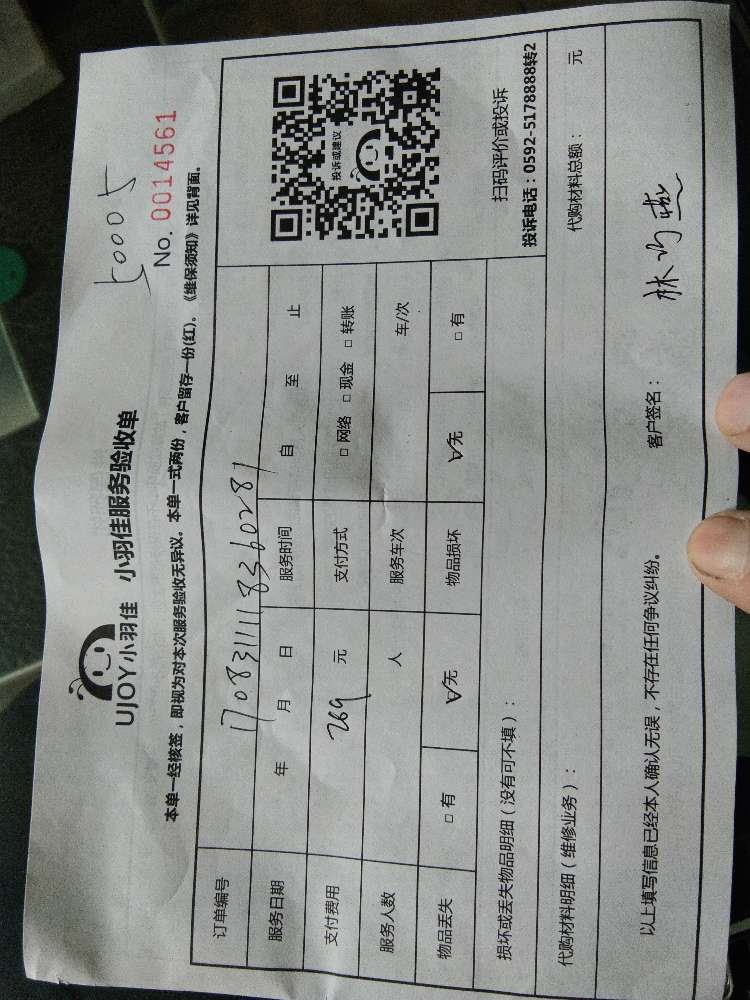 50005
UJOY小羽佳 小羽佳服务验收单
No. 0014561
本单一经核签，即视为对本次服务验收无异议。本单一式两份，客户留存一份(红)。《维保须知》详见背面。
订单编号 1708311118360281
服务日期 年 月 日 服务时间 自 至 止
支付费用 269 元 支付方式 □ 网络 □ 现金 □ 转账
服务人数 人 服务车次 车/次
物品丢失 □ 有 ☑ 无 物品损坏 ☑ 无 □ 有
投诉或建议
扫码评价或投诉
投诉电话：0592-5178888转2
损坏或丢失物品明细（没有可不填）：
代购材料明细（维修业务）： 代购材料总额： 元
以上填写信息已经本人确认无误，不存在任何争议纠纷。 客户签名：